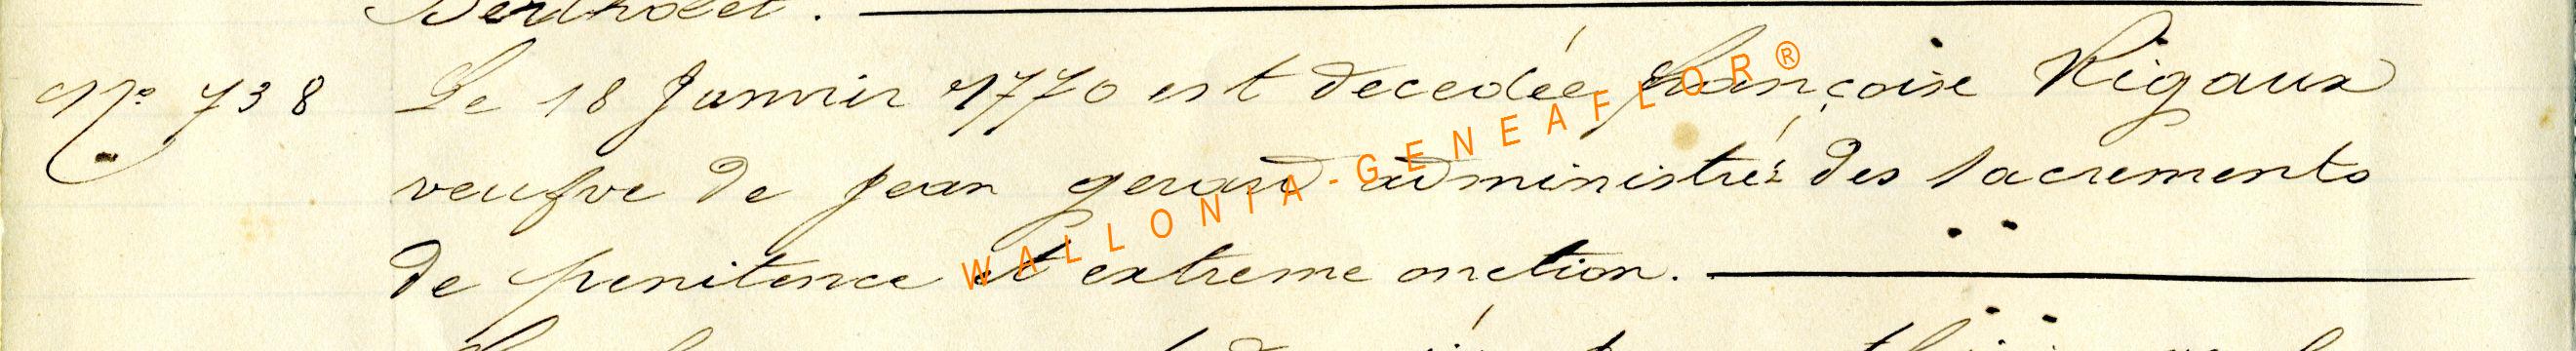 Bertholet.
N° 738 Le 18 Janvier 1770 est decedée françoise Rigaux
veufve de jean gerard administrée des sacrements
de penitence et extreme onction.
WALLONIA-GENEAFLOR®